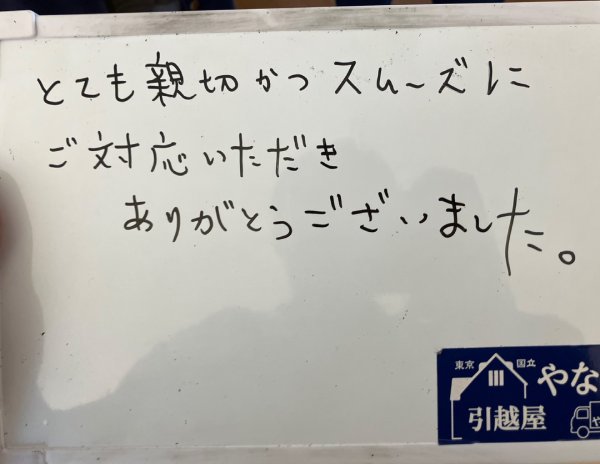 とても親切かつスムーズに
ご対応いただき
ありがとうございました。
東京 国立
やな
引越屋
や